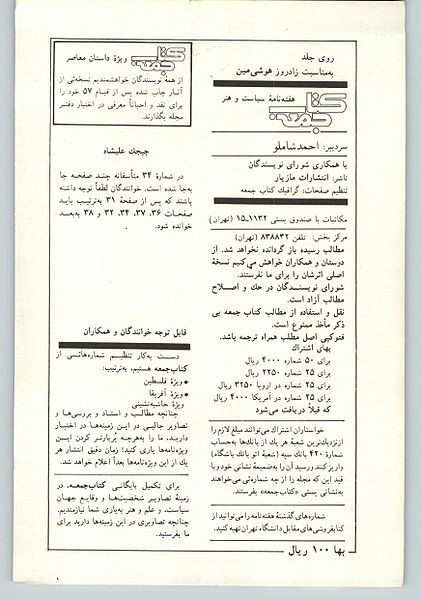 روی جلد
به‌مناسبت زادروز هوشی‌مین
کتاب جمعه
هفته‌نامهٔ سیاست و هنر
سردبیر: احمد شاملو
با همکاری شورای نویسندگان
ناشر: انتشارات مازیار
تنظیم صفحات: گرافیک کتاب جمعه
مکاتبات با صندوق پستی ۱۱۳۲-۱۵ (تهران)
مرکز پخش: تلفن ۸۳۸۸۳۲ (تهران)
مطالب رسیده باز گردانده نخواهد شد. از
دوستان و همکاران خواهش می‌کنیم نسخهٔ
اصلی اثرشان را برای ما نفرستند.
شورای نویسندگان در حک و اصلاح
مطالب آزاد است.
نقل و استفاده از مطالب کتاب جمعه بی
ذکر مأخذ ممنوع است.
فتوکپی اصل مطلب همراه ترجمه باشد.
بهای اشتراک
برای ۵۰ شماره ۴۰۰۰ ریال
برای ۲۵ شماره ۲۲۵۰ ریال
برای ۲۵ شماره در اروپا ۳۲۵۰ ریال
برای ۲۵ شماره در آمریکا ۴۰۰۰ ریال
که قبلاً دریافت می‌شود
خواستاران اشتراک می‌توانند مبلغ لازم را
از نزدیک‌ترین شعبهٔ هر یک از بانک‌ها به‌حساب
شمارهٔ ۴۲۰ بانک سپه (شعبهٔ اتو بانک باشگاه)
واریز کنند و رسید آن را به‌ضمیمهٔ نشانی خود و با
قید این که مجله را از چه شماره‌ئی می‌خواهند
به‌نشانی پستی «کتاب جمعه» بفرستند.
شماره‌های گذشتهٔ هفته‌نامه را می‌توانید از
کتابفروشی‌های مقابل دانشگاه تهران تهیه کنید.
بها ۱۰۰ ریال
کتاب جمعه
ویژهٔ داستان معاصر
از همهٔ نویسندگان خواهشمندیم نسخه‌ئی از
آثار چاپ شدهٔ پس از قیام ۵۷ خود را
برای نقد و احیاناً معرفی در اختیار دفتر
مجله بگذارند.
جیجک علیشاه
در شمارهٔ ۳۴ متأسفانه چند صفحه جا
به‌جا شده است. خوانندگان لطفاً توجه داشته
باشند که پس از صفحهٔ ۳۱ به‌ترتیب باید
صفحات ۳۶، ۳۷، ۳۴، ۳۲ و ۳۸ به‌بعد
خوانده شود.
قابل توجه خوانندگان و همکاران
دست به‌کار تنظیم شماره‌هائی از
کتاب‌جمعه هستیم، به‌ترتیب:
● ویژهٔ فلسطین
● ویژهٔ آفریقا
ویژهٔ حاشیه‌نشینی
چنانچه مطالب و اسناد و بررسی‌ها و
تصاویر جالبی در این زمینه‌ها در اختیار
دارید، ما را به‌هرچه پُربارتر کردن این
ویژه‌نامه‌ها یاری کنید! زمان دقیق انتشار هر
یک از این ویژه‌نامه‌ها بعداً اعلام خواهد شد.
برای تکمیل بایگانی کتاب‌جمعه، در
زمینهٔ تصاویر شخصیت‌ها و وقایع جهان
سیاست، و علم و هنر به‌یاری شما نیازمندیم.
چنانچه تصاویری در این زمینه‌ها دارید برای
ما بفرستید.